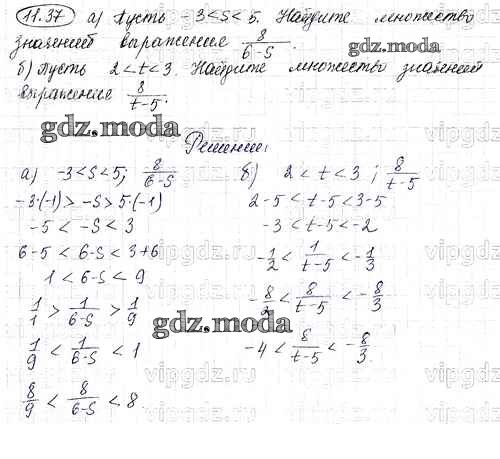 11.37 а) Пусть -3<s<5. Найдите множество
значений выражения 8/(6-s)
б) Пусть 2<t<3. Найдите множество значений
выражения 8/(t-5).
gdz.moda
gdz.moda
Решение:
а) -3<s<5; 8/(6-s)
-3·(-1)>-s>5·(-1)
-5<-s<3
6-5<6-s<3+6
1<6-s<9
1/1>1/(6-s)>1/9
1/9<1/(6-s)<1
8/9<8/(6-s)<8
б) 2<t<3; 8/(t-5)
2-5<t-5<3-5
-3<t-5<-2
-1/2<1/(t-5)<-1/3
-8/2<8/(t-5)<-8/3
-4<8/(t-5)<-8/3.
gdz.moda
vipgdz.ru
vipgdz.ru
vipgdz.ru
vipgdz.ru